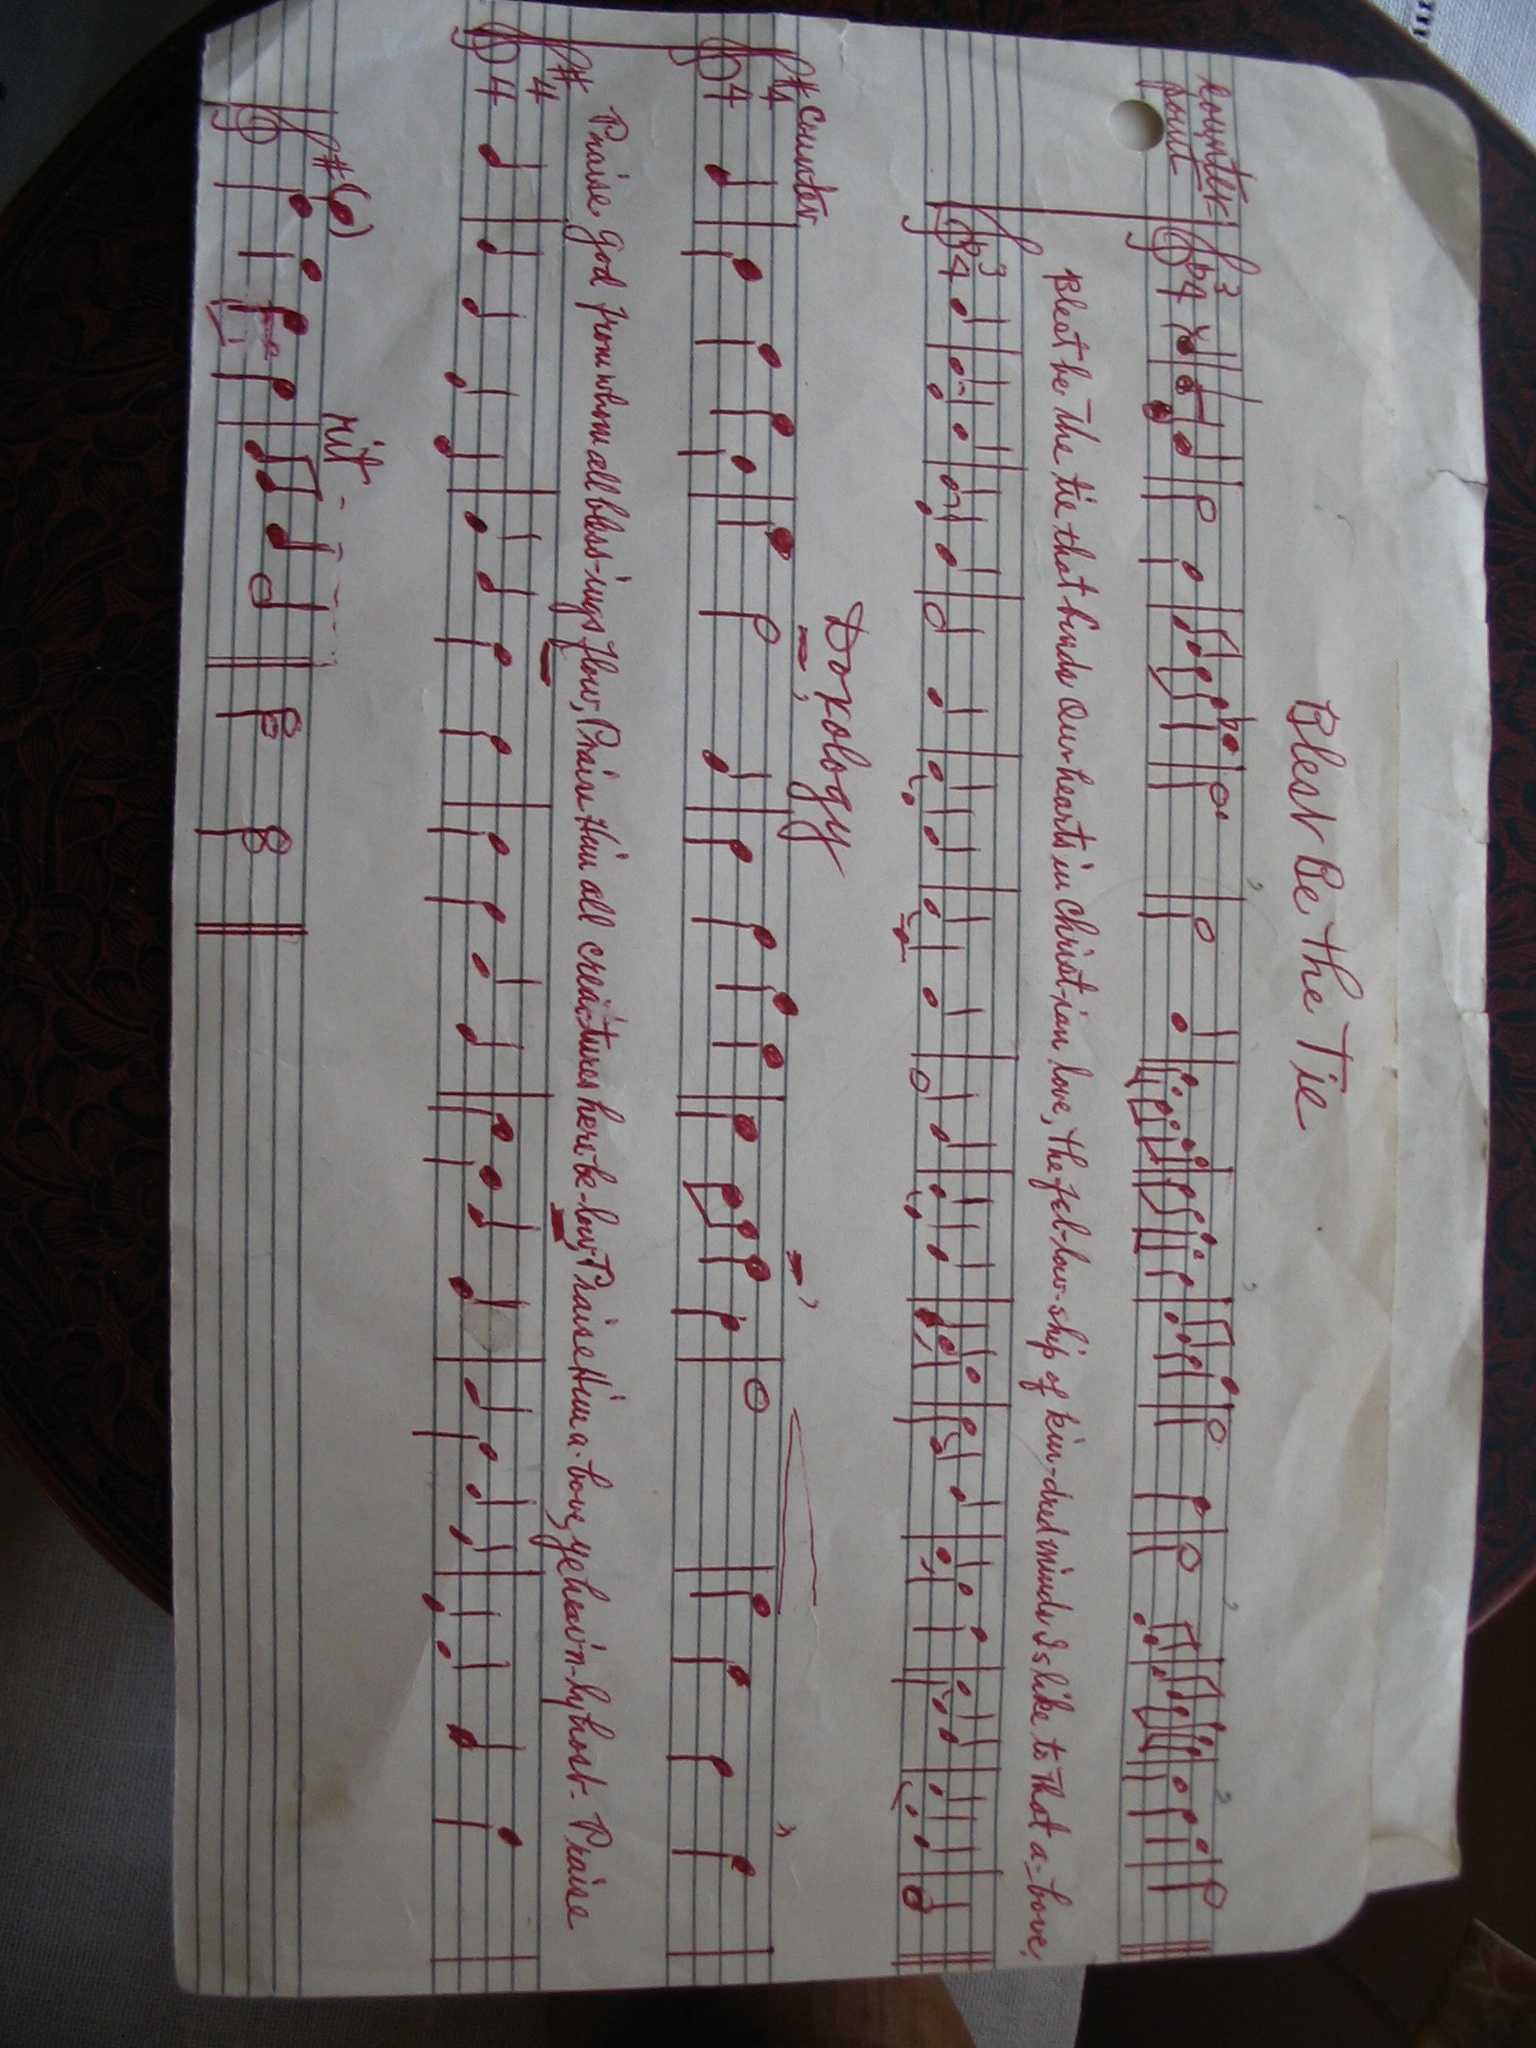 Blest Be The Tie
counter-
point
Blest be The tie that binds Our hearts in Christ-ian love, The fel-low-ship of kin-dred minds Is like to That a-bove.
Doxology
Counter
Praise God from whom all bless-ings flow, Praise Him all crea-tures here be-low, Praise Him a-bove, ye heav'n-ly host- Praise
rit - - - -